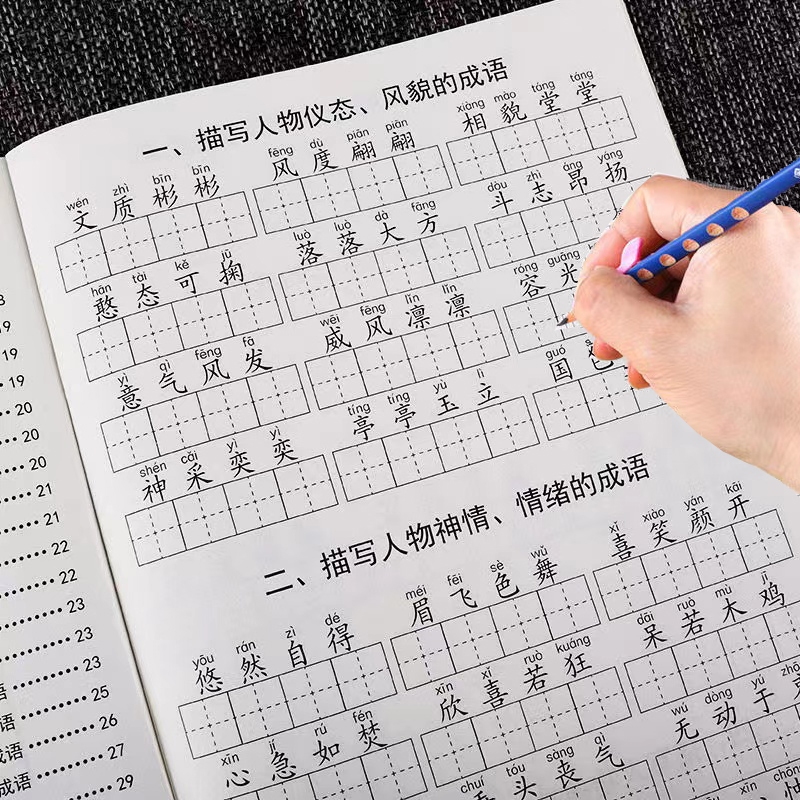 19
19
19
20
20
20
21
21
22
22
23
23
23
语 25
语 26
成语 27
成语 29
一、描写人物仪态、风貌的成语
wén zhì bīn bīn
文质彬彬
fēng dù piān piān
风度翩翩
xiàng mào táng táng
相貌堂堂
hān tài kě jū
憨态可掬
luò luò dà fāng
落落大方
dǒu zhì áng yáng
斗志昂扬
yì qì fēng fā
意气风发
wēi fēng lǐn lǐn
威风凛凛
róng guāng
容光
shén cǎi yì yì
神采奕奕
tíng tíng yù lì
亭亭玉立
guó
国色
二、描写人物神情、情绪的成语
yōu rán zì dé
悠然自得
méi fēi sè wǔ
眉飞色舞
xǐ xiào yán kāi
喜笑颜开
xīn jí rú fén
心急如焚
xīn xǐ ruò kuáng
欣喜若狂
dāi ruò mù jī
呆若木鸡
chuí tóu sàng qì
垂头丧气
wú dòng yú
无动于